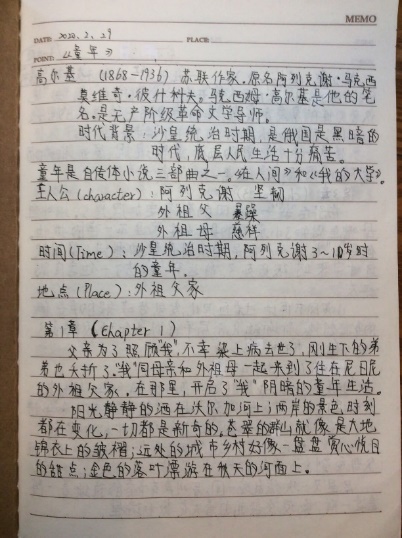 MEMO
DATE: 2020.2.29 PLACE:
POINT: 《童年》
高尔基 (1868-1936) 苏联作家。原名阿列克谢·马克西
莫维奇·彼什科夫。马克西姆·高尔基是他的笔
名。是无产阶级革命文学导师。
时代背景:沙皇统治时期,是俄国是黑暗的
时代,底层人民生活十分痛苦。
童年是自传体小说三部曲之一。《在人间》和《我的大学》。
主人公(character):阿列克谢 坚韧
外祖父 暴躁
外祖母 慈祥
时间(Time):沙皇统治时期,阿列克谢3~10岁时
的童年。
地点(Place):外祖父家
第1章 (Chapter 1)
父亲为了照顾"我",不幸染上病去世了,刚生下的弟
弟也夭折了。"我"同母亲和外祖母一起来到了住在尼日尼
的外祖父家。在那里,开启了"我"阴暗的童年生活。
阳光静静的洒在沃尔加河上;两岸的景色,时刻
都在变化,一切都是新奇的,苍翠的群山就像是大地
锦衣上的皱褶;远处的城市乡村好像一盘盘赏心悦目
的甜点;金色的落叶漂游在秋天的河面上。